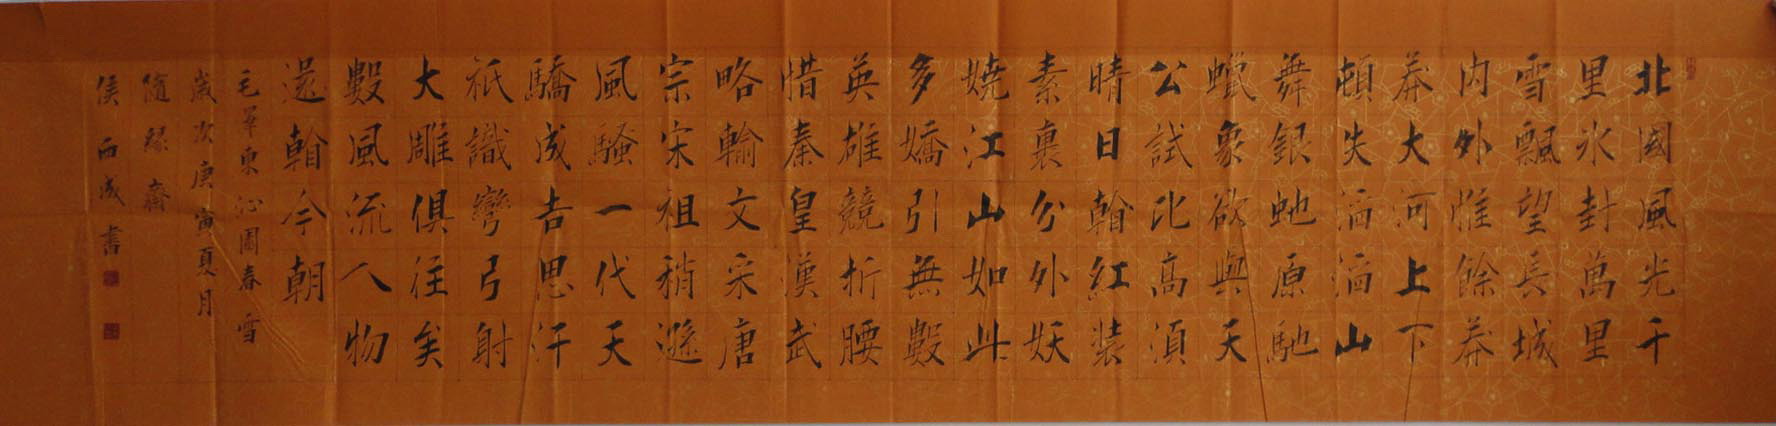 北國風光千
里氷封萬里
雪飄望長城
内外惟餘莽
莽大河上下
頓失滔滔山
舞銀虵原馳
蠟象欲與天
公試比高須
晴日看紅裝
素裹分外妖
嬈江山如此
多嬌引無數
英雄競折腰
惜秦皇漢武
略輸文采唐
宗宋祖稍遜
風騷一代天
驕成吉思汗
祇識彎弓射
大雕俱往矣
數風流人物
還看今朝
毛澤東沁園春雪
歲次庚寅夏月
隨緣齋
侯西成書